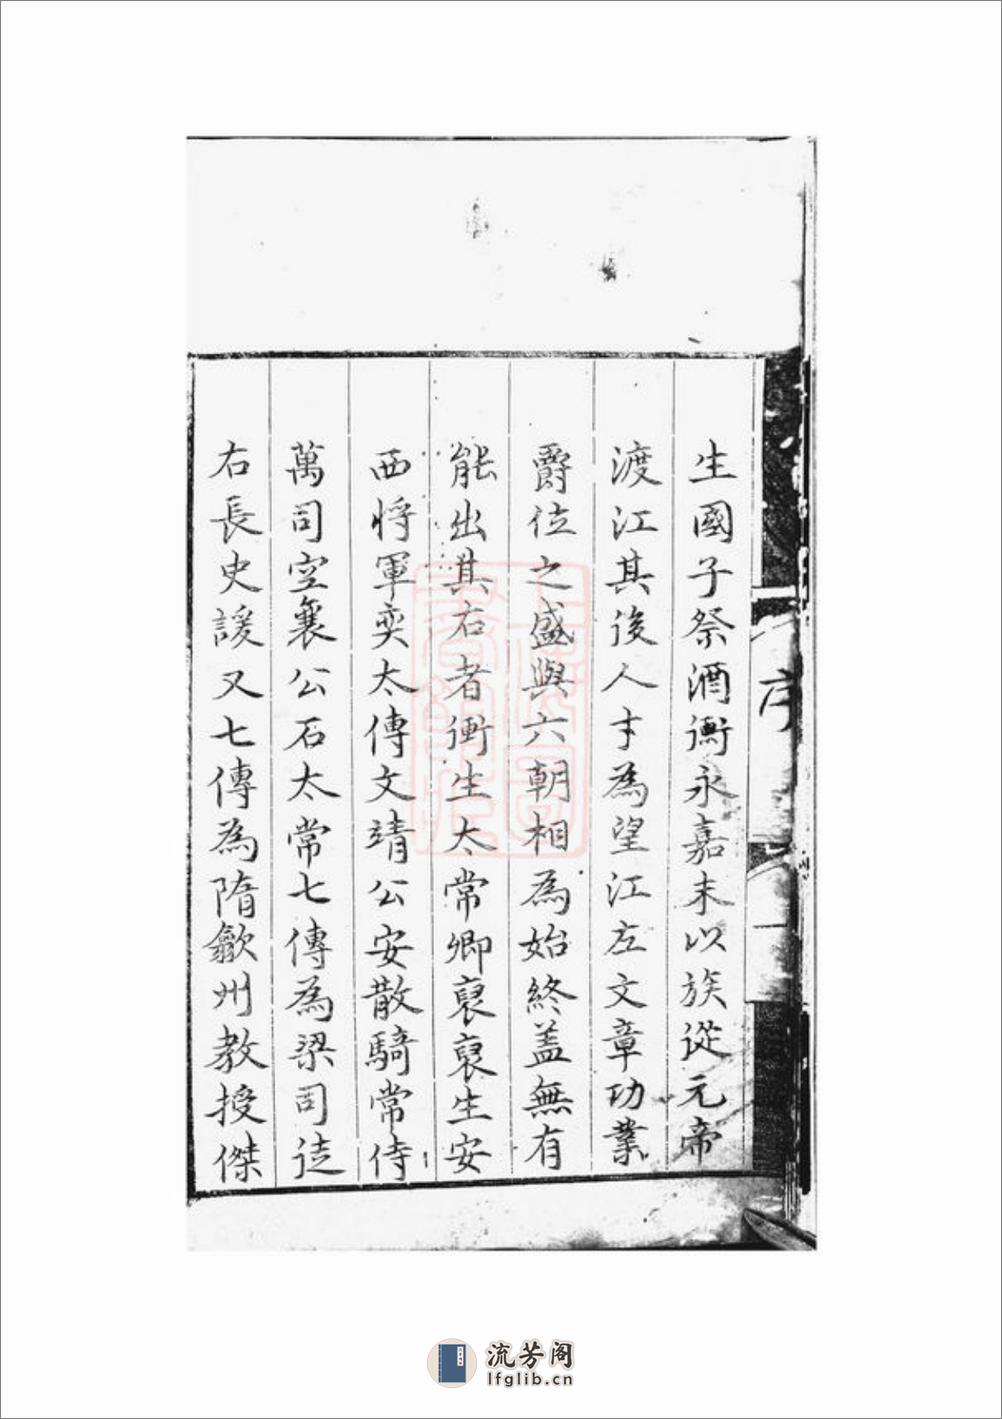 生國子祭酒衡永嘉末以族從元帝
渡江其後人才為望江左文章功業
爵位之盛與六朝相為始終盖無有
能出其右者衡生太常卿裒裒生安
西將軍奕太傳文靖公安散騎常侍
萬司空襄公石太常七傳為梁司徒
右長史諼又七傳為隋歙州教授傑
序
流芳阁
lfglib.cn